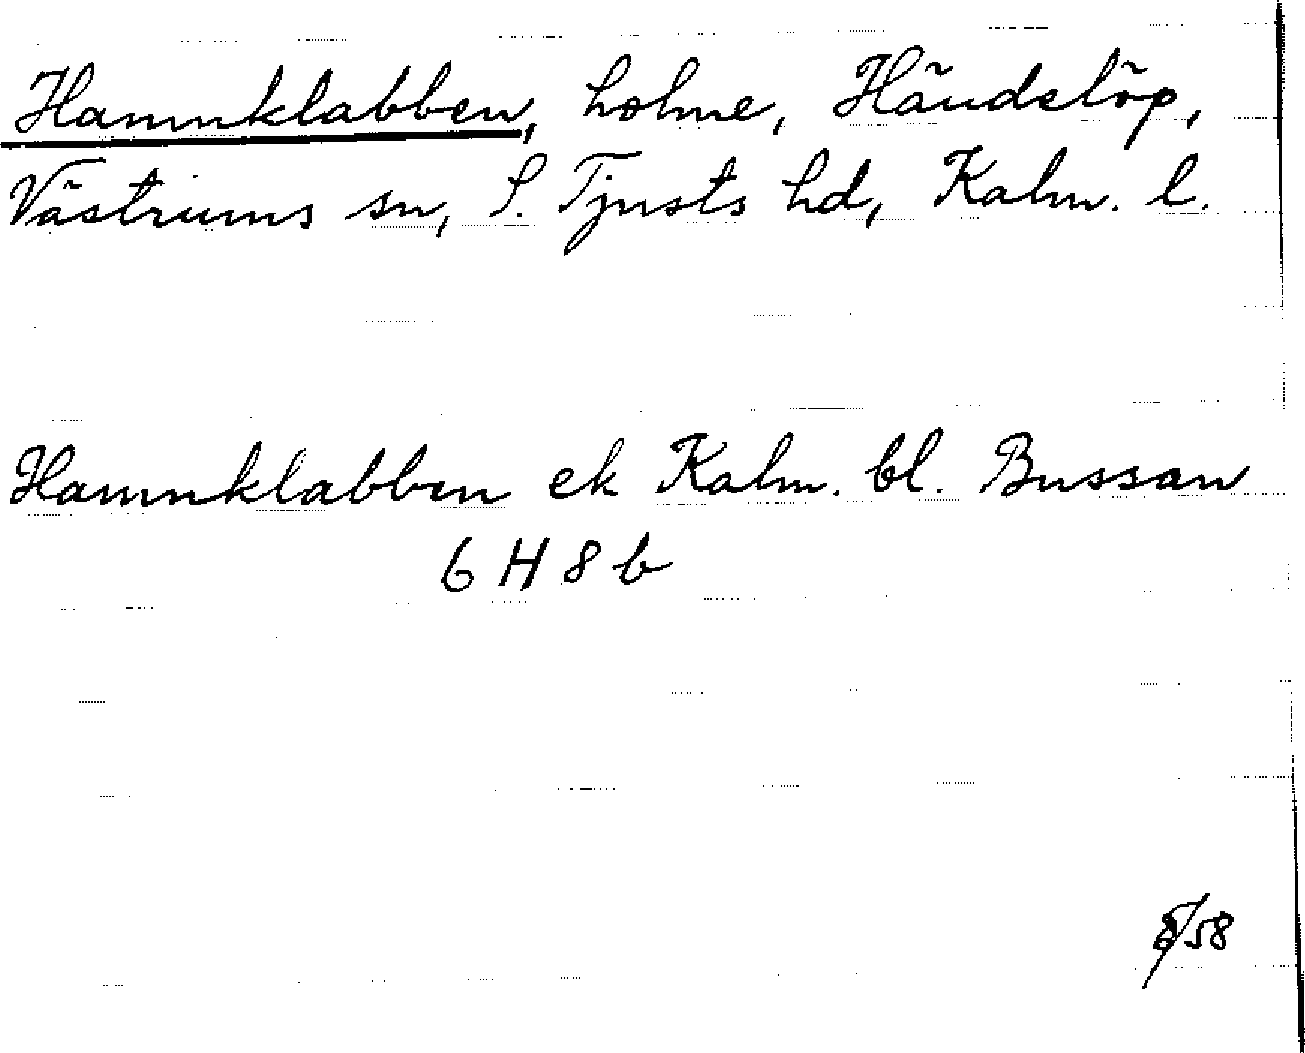 Hamnklabben, holme, Händelöp,
Västrums sn, S. Tjusts hd, Kalm. l.
Hamnklabben ek Kalm. bl. Bussan
6 H 8 b
58